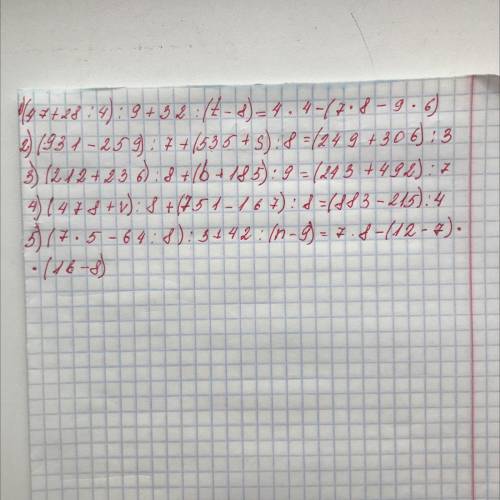 1)(47+28:4):9+32:(t-8)=4·4-(7·8-9·6)
2)(931-259):7+(535+s):8=(249+306):3
3)(212+236):8+(b+185):9=(213+492):7
4)(478+v):8+(751-167):8=(883-215):4
5)(7·5-64:8):3+42:(n-9)=7·8-(12-7)·
·(16-8)